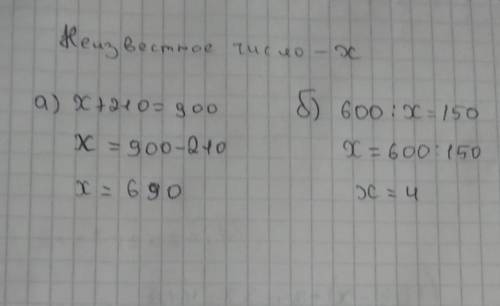 Неизвестное число – x
а) x+210=900 б) 600:x=150
x=900-210 x=600:150
x=690 x=4